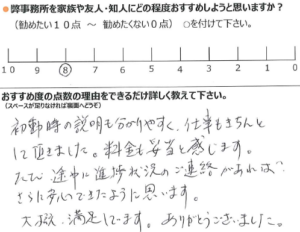 ●弊事務所を家族や友人・知人にどの程度おすすめしようと思いますか？
（勧めたい１０点　～　勧めたくない０点）　○を付けて下さい。
10 9 8 7 6 5 4 3 2 1 0
おすすめ度の点数の理由をできるだけ詳しく教えて下さい。
（スペースが足りなければ裏面へどうぞ）
初動時の説明も分かりやすく、仕事もきちんと
して頂きました。料金も妥当と感じます。
ただ、途中に進捗状況のご連絡があれば
さらに安心できたように思います。
大変、満足してます。ありがとうございました。